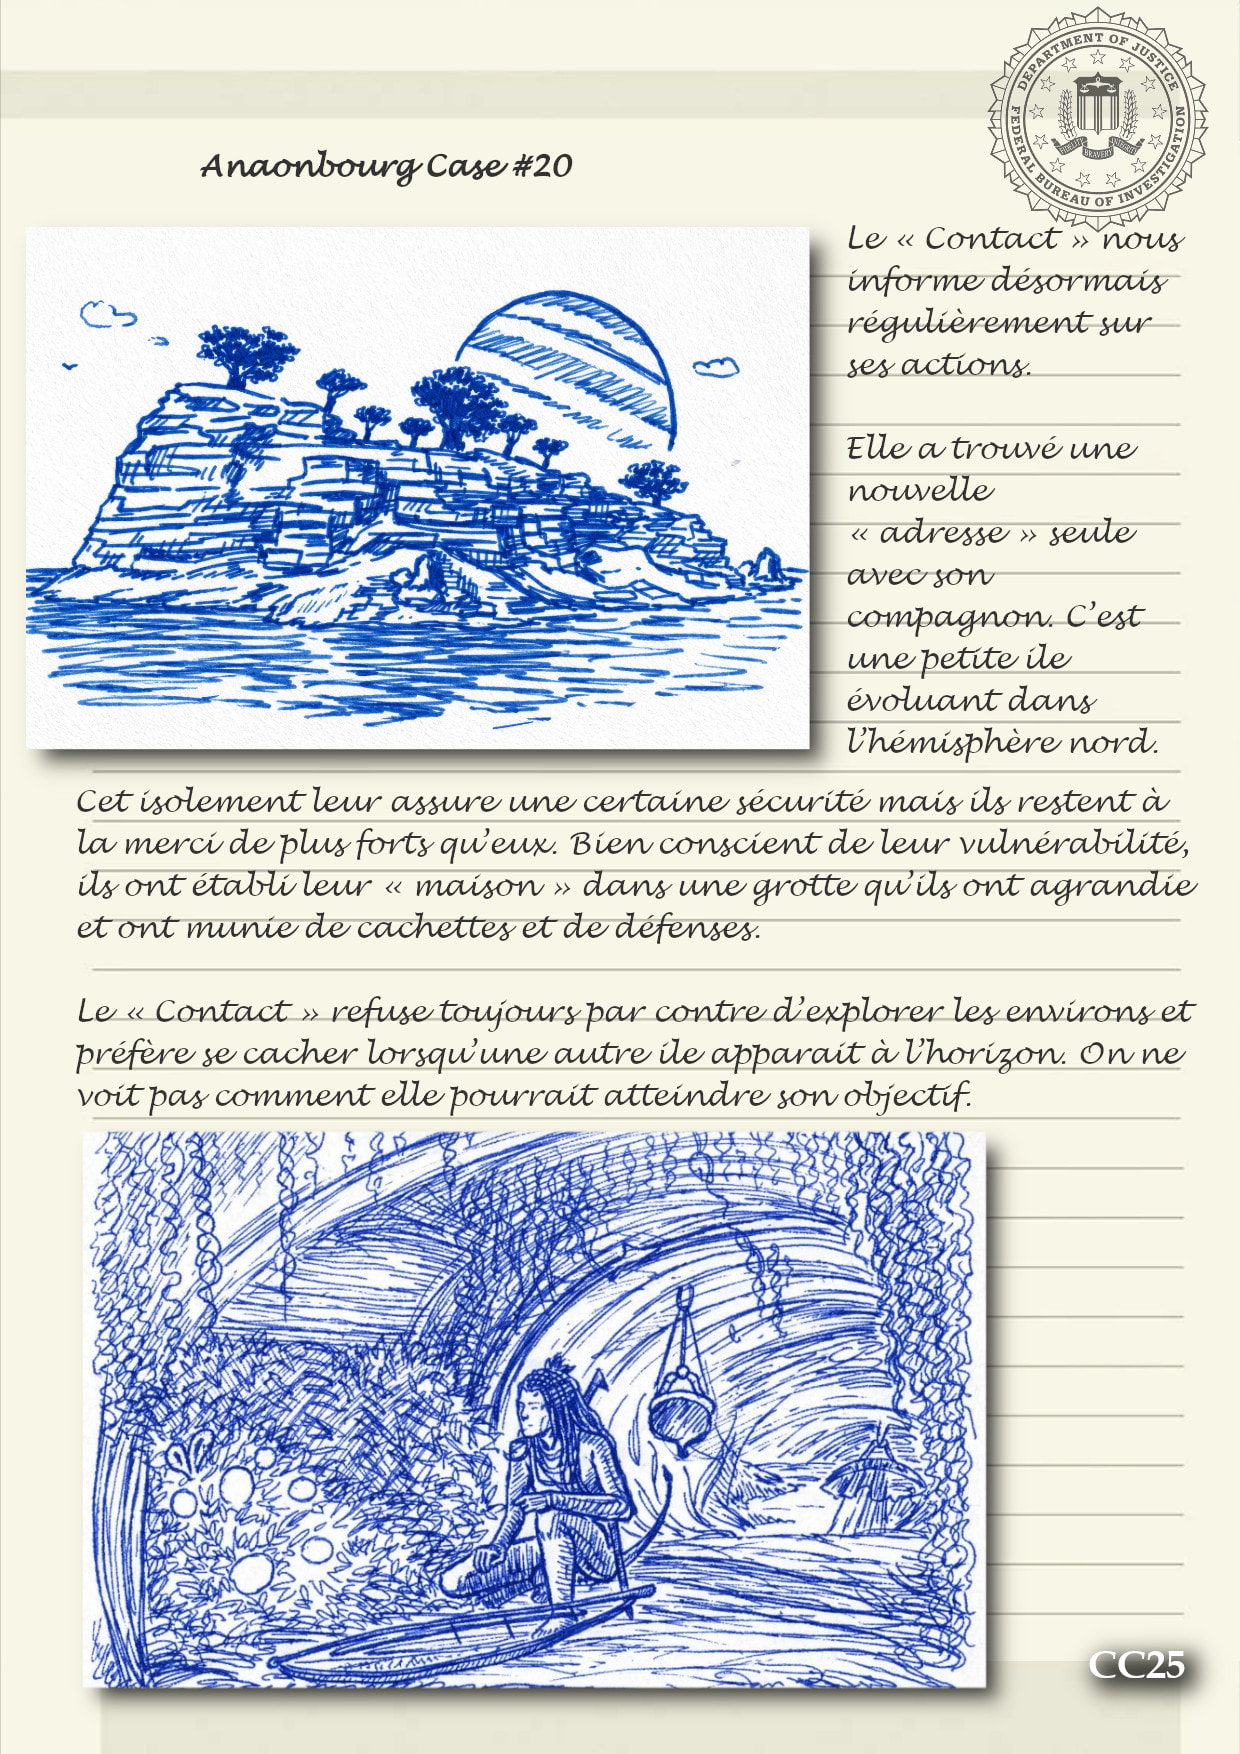 DEPARTMENT OF JUSTICE
FEDERAL BUREAU OF INVESTIGATION
FIDELITY BRAVERY INTEGRITY
Anaonbourg Case #20
Le « Contact » nous
informe désormais
régulièrement sur
ses actions.
Elle a trouvé une
nouvelle
« adresse » seule
avec son
compagnon. C’est
une petite ile
évoluant dans
l’hémisphère nord.
Cet isolement leur assure une certaine sécurité mais ils restent à
la merci de plus forts qu’eux. Bien conscient de leur vulnérabilité,
ils ont établi leur « maison » dans une grotte qu’ils ont agrandie
et ont munie de cachettes et de défenses.
Le « Contact » refuse toujours par contre d’explorer les environs et
préfère se cacher lorsqu’une autre ile apparait à l’horizon. On ne
voit pas comment elle pourrait atteindre son objectif.
CC25